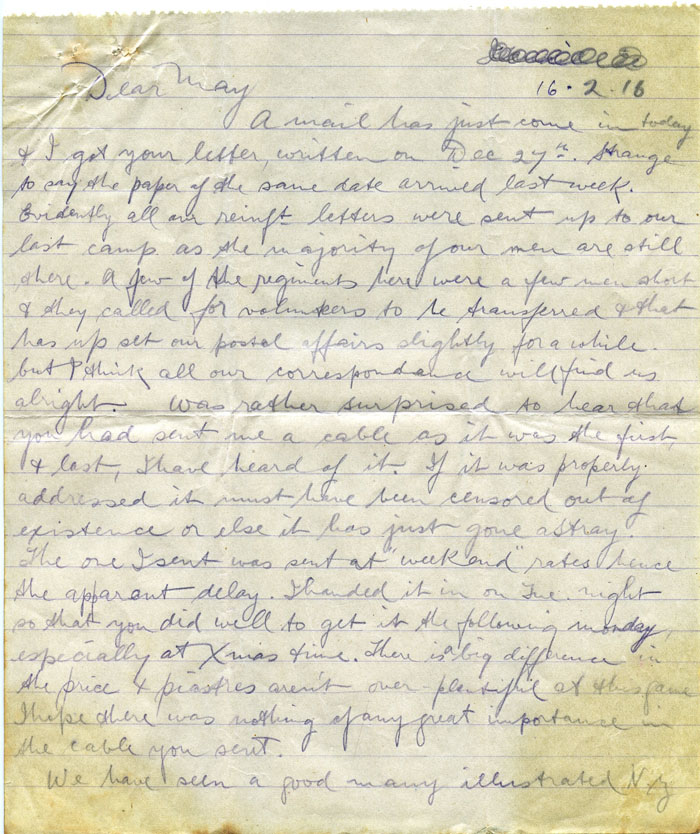 16.2.16
Dear May
A mail has just come in today
& I got your letter, written on Dec 27th. Strange
to say the paper of the same date arrived last week.
Evidently all our reinft letters were sent up to our
last camp as the majority of our men are still
there. A few of the regiments here were a few men short
& they called for volunteers to be transferred & that
has up set our postal affairs slightly for a while.
but I think all our correspondance will find us
alright. Was rather surprised to hear that
you had sent me a cable as it was the first,
& last, I have heard of it. If it was properly
addressed it must have been censored out of
existence or else it has just gone astray.
The one I sent was sent at "week end" rates hence
the apparant delay. I handed it in on Tue. night
so that you did well to get it the following monday,
especially at Xmas time. There is a big difference in
the price & piastres aren't over-plentiful at this game
I hope there was nothing of any great importance in
the cable you sent.
We have seen a good many illustrated N.Z